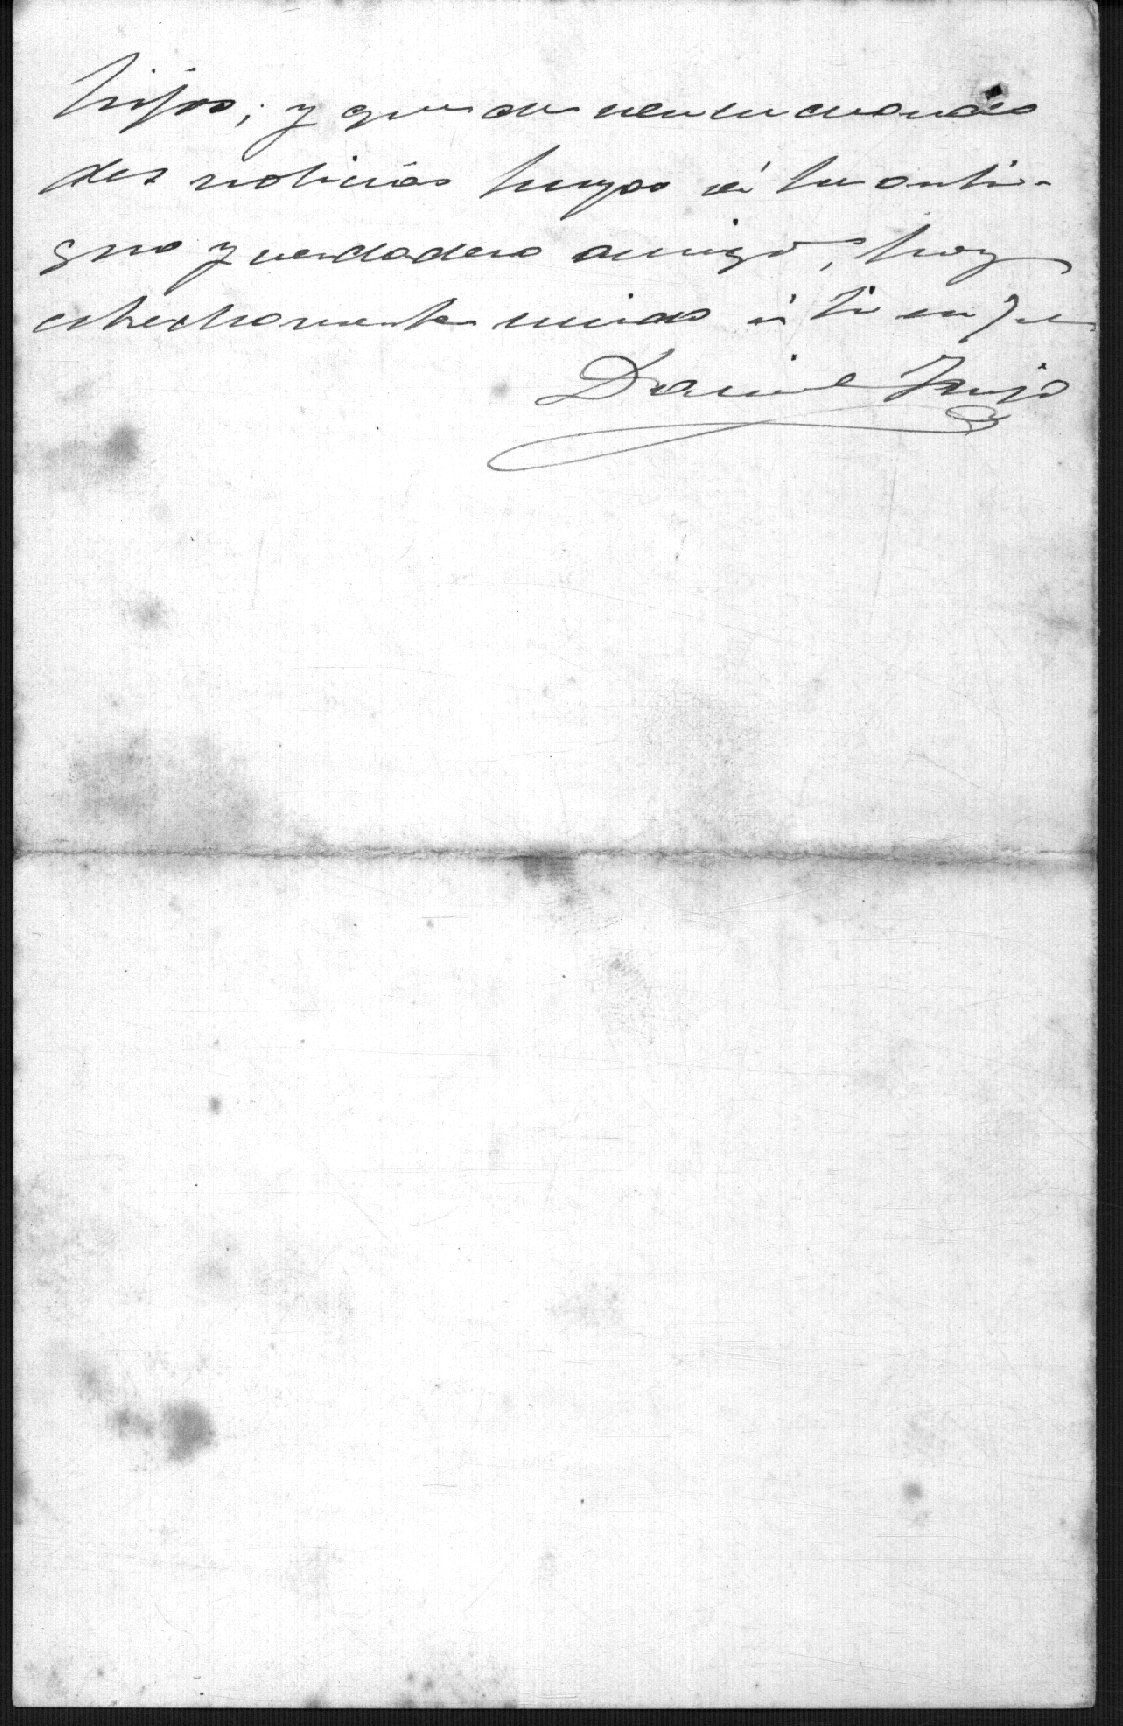 hijos; y que de vez en cuando
des noticias tuyas á tu anti-
guo y verdadero amigo, hoy
estrechamente unido á ti en
Daniel